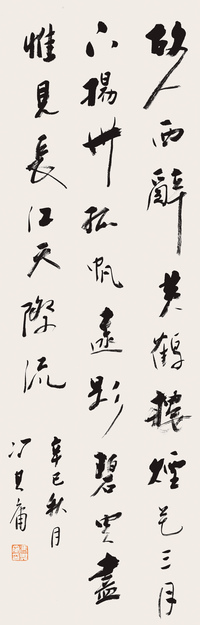 故人西辭黃鶴樓煙花三月
下揚州孤帆遠影碧空盡
惟見長江天際流
辛巳秋月
馮其庸